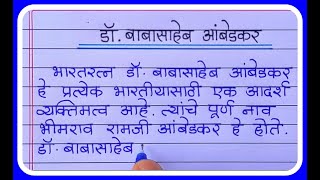 डॉ. बाबासाहेब आंबेडकर
भारतरत्न डॉ. बाबासाहेब आंबेडकर
हे प्रत्येक भारतीयासाठी एक आदर्श
व्यक्तिमत्व आहे. त्यांचे पूर्ण नाव
भीमराव रामजी आंबेडकर हे होते.
डॉ. बाबासाहेब